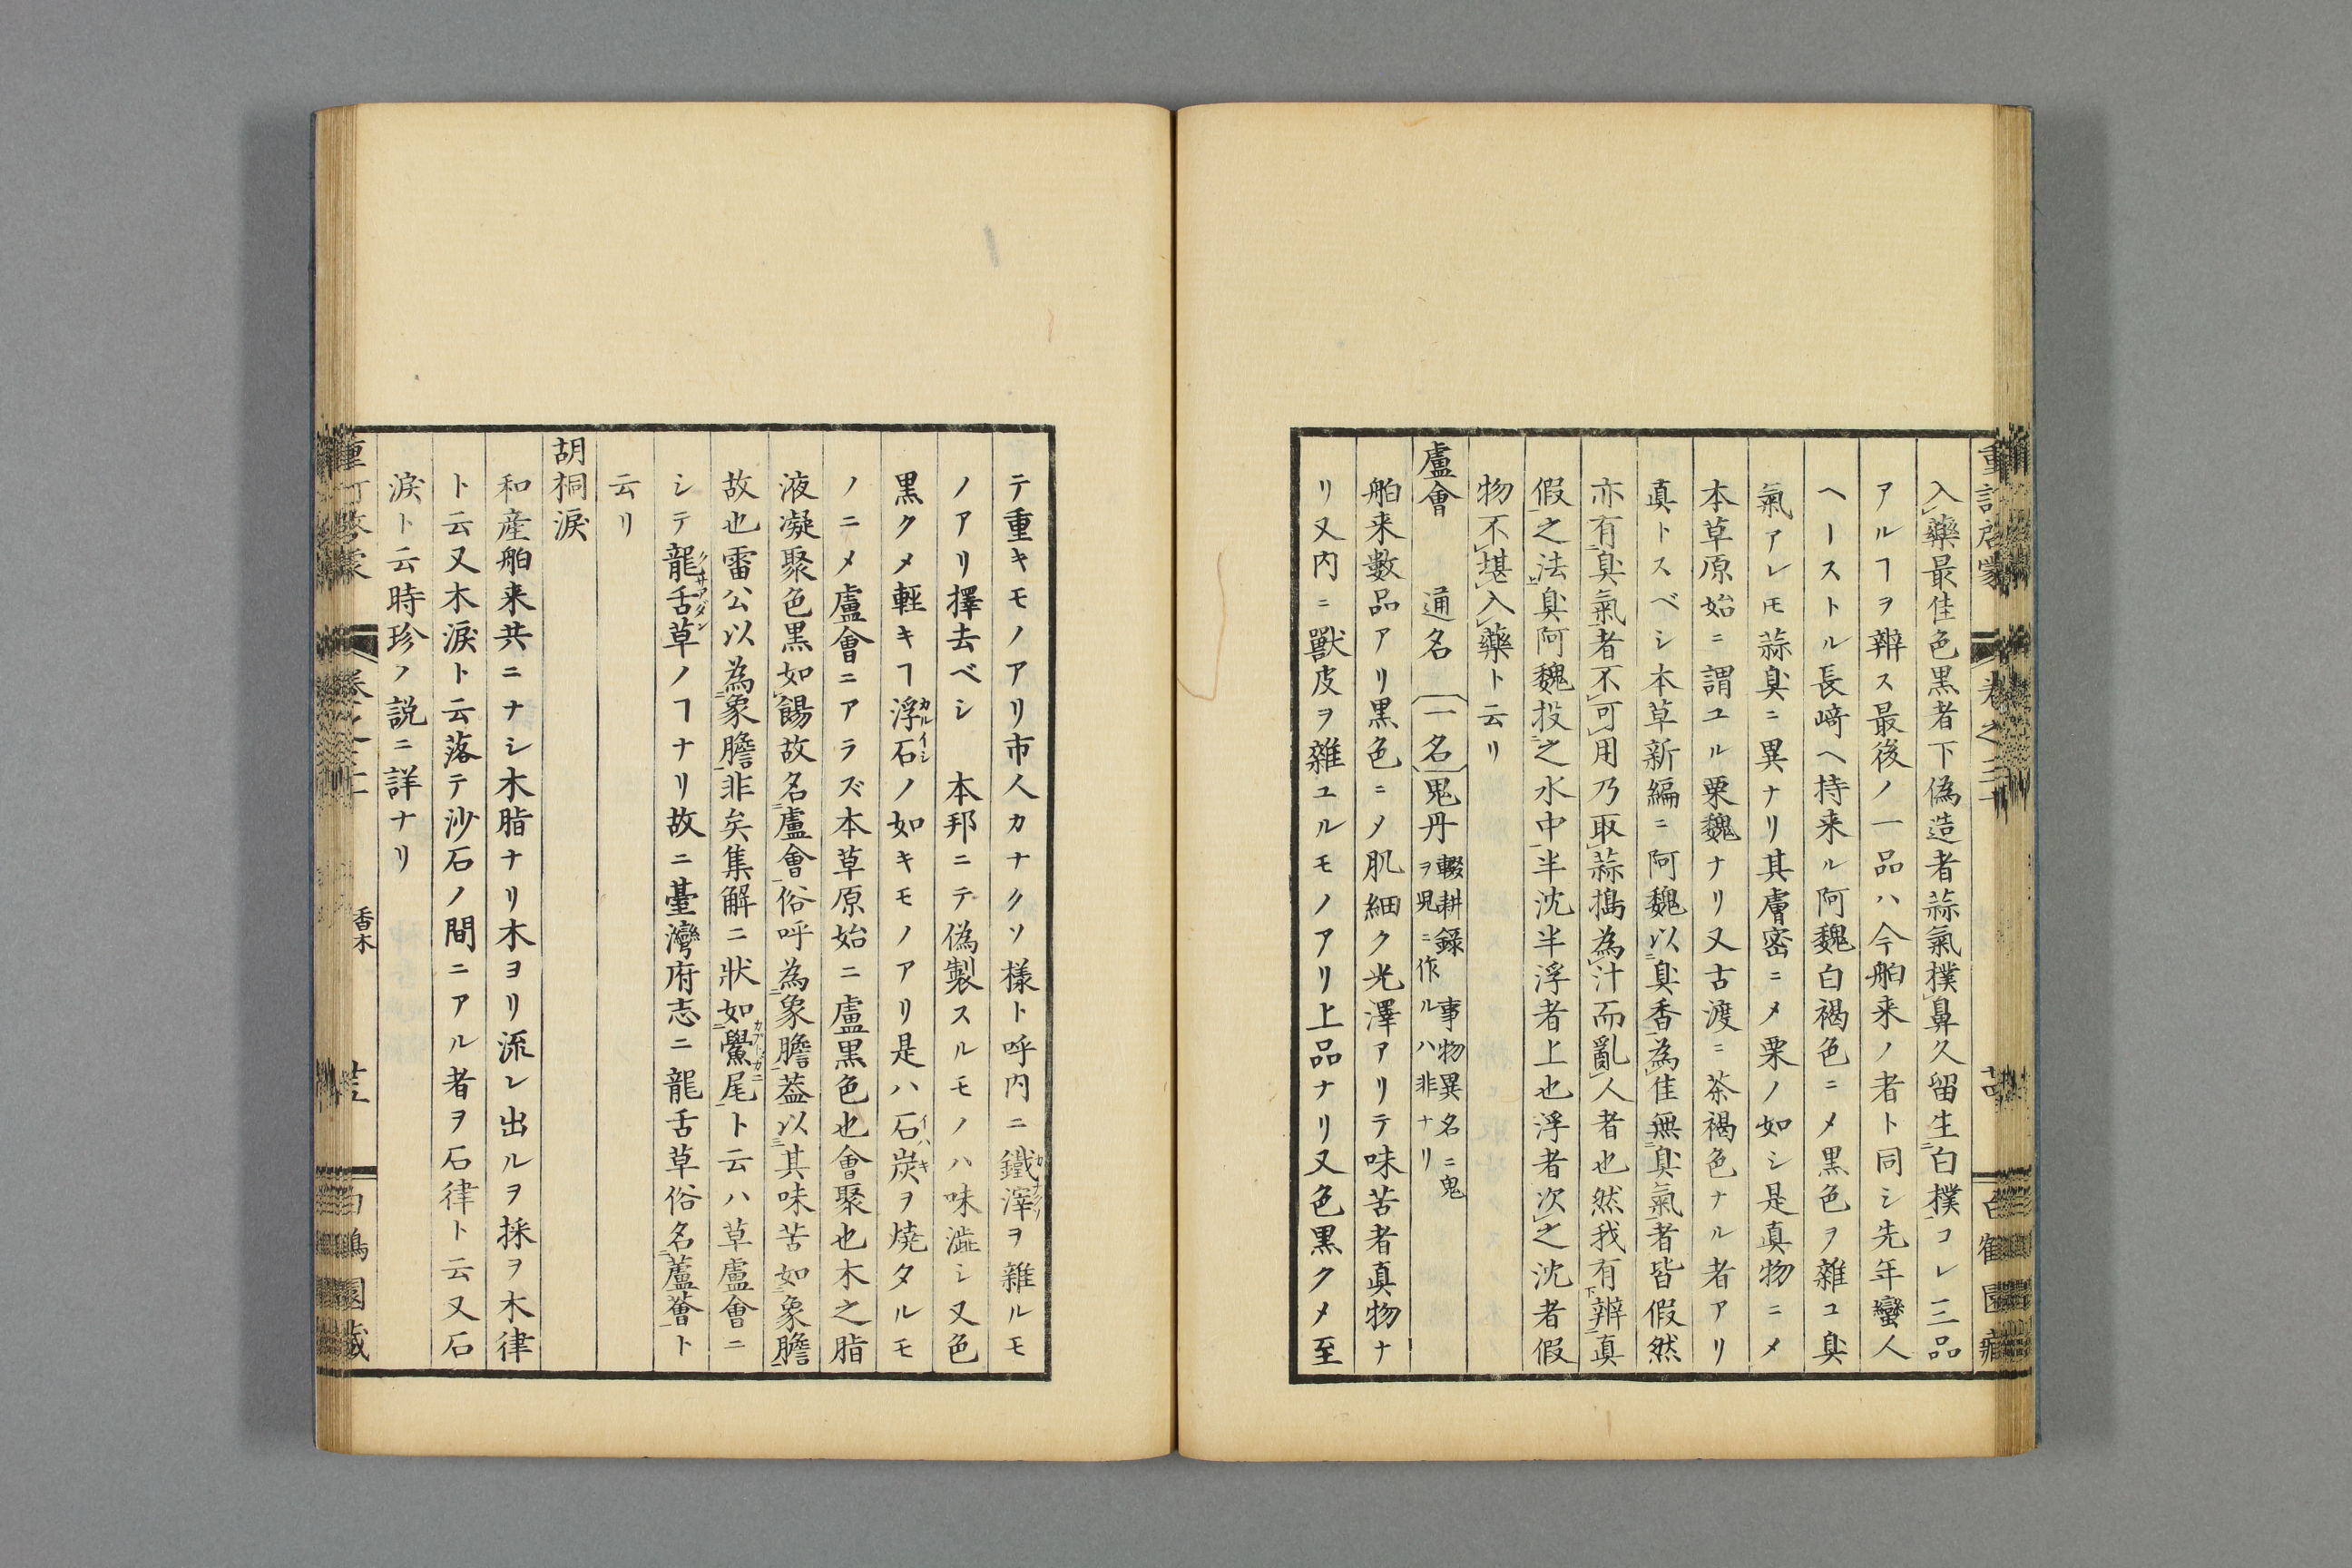 入藥最佳色黒者下偽造者蒜氣撲鼻久留生白撲コレ三品
アルヿヲ辨ス最後ノ一品ハ今舶来ノ者ト同シ先年蠻人
ヘーストル長﨑ヘ持来ル阿魏白褐色ニメ黒色ヲ雜ユ臭
氣アレ𪜈蒜臭ニ異ナリ其膚密ニメ栗ノ如シ是真物ニメ
本草原始ニ謂ユル栗魏ナリ又古渡ニ茶褐色ナル者アリ
真トスベシ本草新編ニ阿魏以臭香為佳無臭氣者皆假然
亦有臭氣者不可用乃取蒜搗為汁而亂人者也然我有辨真
假之法臭阿魏投之水中半沈半浮者上也浮者次之沈者假
物不堪入藥ト云リ
盧會 通名 〔一名〕鬼丹 輟耕録 事物異名ニ鬼ヲ児ニ作ルハ非ナリ
舶来數品アリ黒色ニメ肌細ク光澤アリテ味苦者真物ナ
リ又内ニ獸皮ヲ雜ユルモノアリ上品ナリ又色黒クメ至
テ重キモノアリ市人カナクソ様ト呼内ニ鐵滓ヲ雜ルモ
ノアリ擇去ベシ 本邦ニテ偽製スルモノハ味澁シ又色
黒クメ軽キヿ浮石ノ如キモノアリ是ハ石炭ヲ焼タルモ
ノニメ盧會ニアラズ本草原始ニ盧黒色也會聚也木之脂
液凝聚色黒如餳故名盧會俗呼為象膽葢以其味苦如象膽
故也雷公以為象膽非矣集解ニ狀如鱟尾ト云ハ草盧會ニ
シテ龍舌草ノヿナリ故ニ臺灣府志ニ龍舌草俗名蘆薈ト
云リ
胡桐淚
和産舶来共ニナシ木脂ナリ木ヨリ流レ出ルヲ採ヲ木律
ト云又木淚ト云落テ沙石ノ間ニアル者ヲ石律ト云又石
淚ト云時珍ノ説ニ詳ナリ
香木